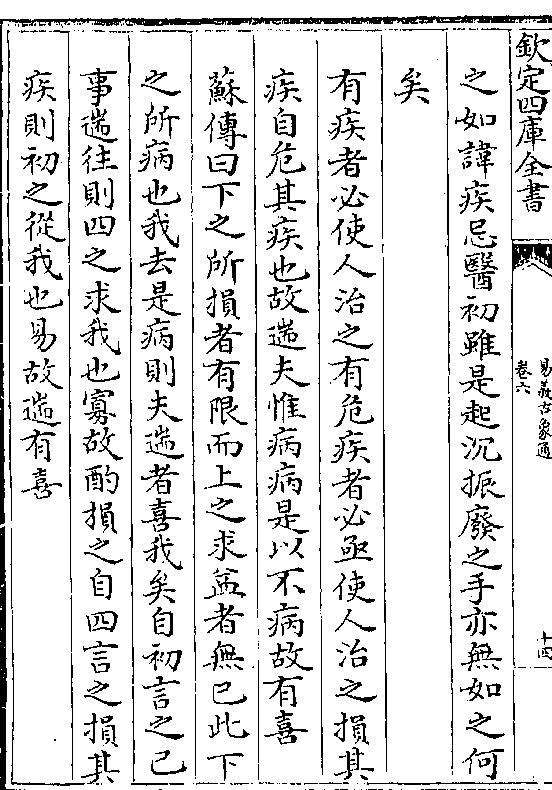 欽定四庫全書
易義古象通
卷六
十四
之如諱疾忌醫初雖是起沉振廢之手亦無如之何
矣
有疾者必使人治之有危疾者必亟使人治之損其
疾自危其疾也故遄夫惟病病是以不病故有喜
蘇傳曰下之所損者有限而上之求益者無已此下
之所病也我去是病則夫遄者喜我矣自初言之已
事遄往則四之求我也寡故酌損之自四言之損其
疾則初之從我也易故遄有喜